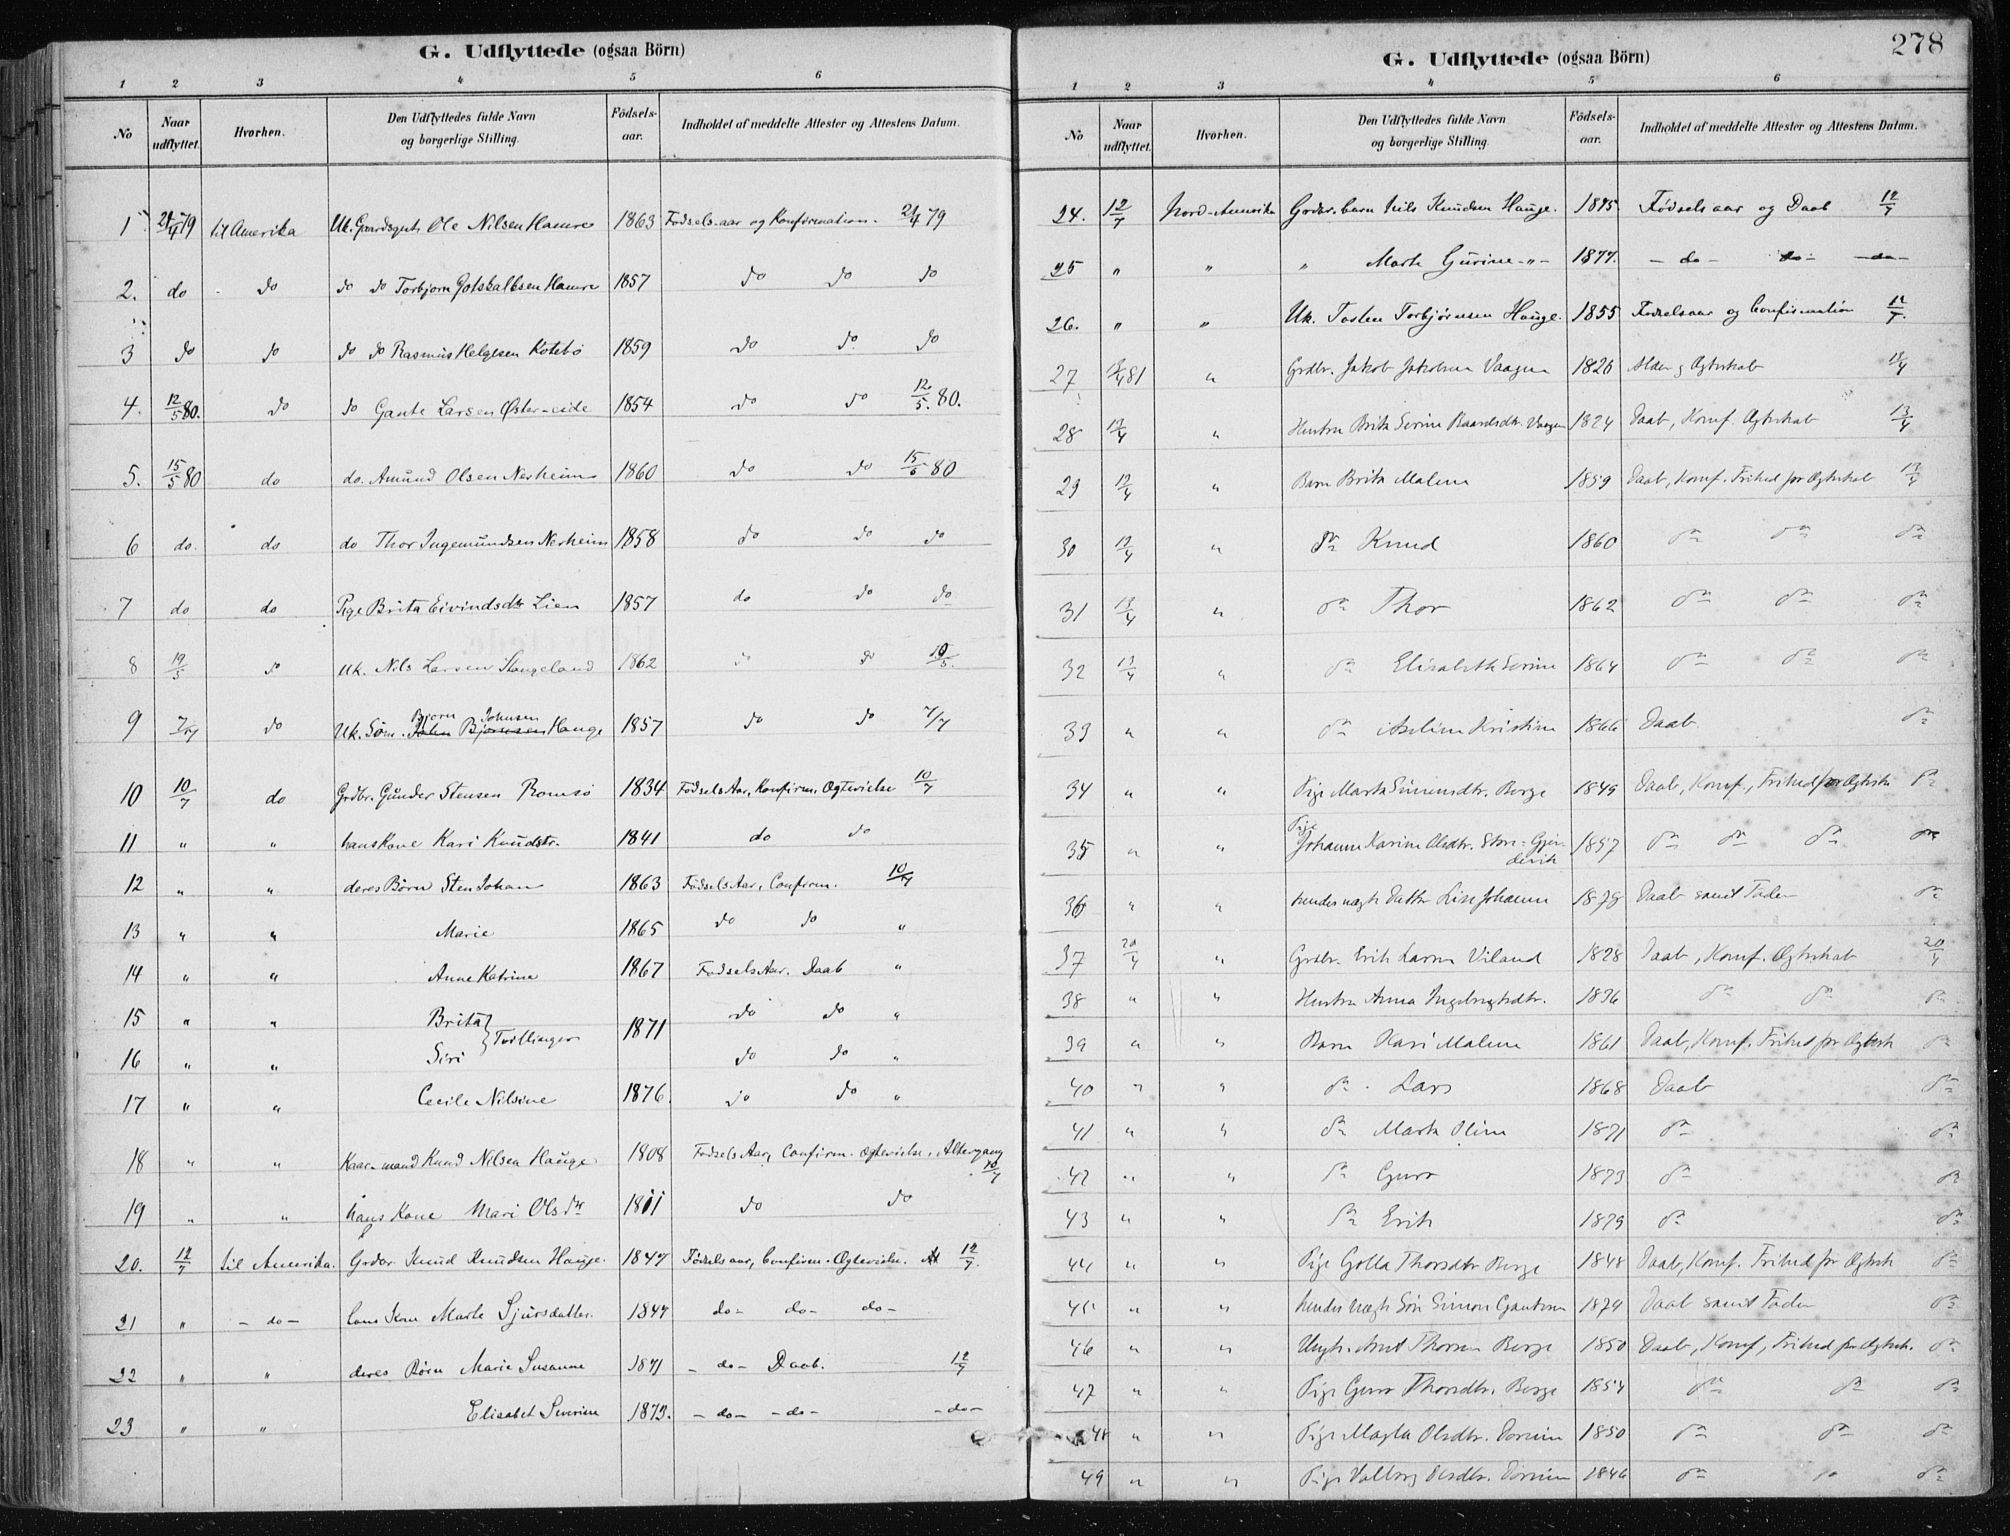 G. Udflyttede (ogsaa Börn)
1 2 3 4 5 6
No Naar udflyttet. Hvorhen. Den Udflyttedes fulde Navn og borgerlige Stilling. Födsels-aar. Indholdet af meddelte Attester og Attestens Datum.
1 21/4 79 til Amerika Uk. Gaardsgut Ole Nilsen Hamre 1863 Fødsels-aar og Konfirmation. 21/4 79
2. do do do do Torbjørn Gotskalksen Hamre 1857 do do do
3 do do do do Rasmus Helgesen Kotebø 1859 do do do
4. 12/5 80. do do Gaute Larsen Øster-eide 1854 do do 12/5. 80.
5. 15/5 80 do do. Amund Olsen Nesheim 1860 do do 15/5 80
6 do. do do Thor Ingemundsen Nesheim 1858 do do do
7 do do Pige Brita Eivindsdtr Lien 1857 do do do
8 19/5 do Uk. Nils Larsen Stangeland 1862 do do 19/5.
9 7/7 do Bjørn Johnsen
Uk. Søn. John Bjørnsen Hauge 1857 do do 7/7
10 10/7 do Grdbr. Gunder Stensen Romsø 1834 Fødsels Aar, Konfirm. Ogtevielse 10/7
11 " " hans Kone Kari Knudstr. 1841 do do
12 " " deres Børn Sten Johan 1863 Fødsels Aar, Confirm. 10/7
13 " " Marie 1865 do do "
14 " " Anne Katrine 1867 Fødsels Aar. Daab "
15 " " Brita } Tvillinger 1871 do do "
16 " " Siri do do "
17 " " Cecile Nilsine 1876. do do "
18 " " Kaar-mand Knud Nilsen Hauge 1808 Fødsels Aar, Confirm. Ogtevielse, Altergang
10/7
19 " " hans Kone Mari Olsdtr 1811 do do
20. 12/7 til Amerika. Grdbr Knud Knudsen Hauge. 1847 Fødselsaar, Confirm. Ogtevielse. At 12/7.
21 " - do - hans Kone Marte Sjursdatter. 1847 do- do- do-
22 " " deres Børn Marie Susanne 1871 - do - Daab. 12/7
23 " " Elisabet Severine 1873. - do - - do - - do -
278
G. Udflyttede (ogsaa Börn)
1 2 3 4 5 6
No Naar udflyttet. Hvorhen. Den Udflyttedes fulde Navn og borgerlige Stilling. Födsels-aar. Indholdet af meddelte Attester og Attestens Datum.
24. 12/7 Nord-Amerika Grdbr. barn Nils Knudsen Hauge. 1875. Fødselsaar og Daab 12/7
25 " " " Marte Gurine -"- 1877. - do - - do - - do -
26. " " Uk. Tosten Torbjørnsen Hauge. 1855 Fødselsaar og Confirmation 12/7.
27 13/4 81 " Grdbr. Jakob Jakobsen Vaagen 1826 Alder og Ogteskab 13/4
28 13/4 " Hustru Brita Serine Baardsdtr. Vaagen 1824 Daab, Konf. Ogteskab 13/4
29 13/4 " Barn Brita Malene 1859 Daab, Konf. Frihed for Ogteskab 13/4
30 13/4 " do Knud 1860 do do do
31 13/4 " do Thor 1862 do do do
32 13/4 " do Elisabeth Serine 1864 do do do
33 " " do Aseline Kristine 1866 Daab. do
34 " " Pige Marta Simensdtr. Berge 1849 Daab, Konf., Frihed for Ogtesk do
35 " " Pige Johanne Karine Olsdtr. Store-Gjer-
devik 1857 do do do do
36 " " hendes uægte Datter Lise Johanne 1878 Daab samt Fader do
37 20/4 " Grdbr. Erik Larsen Viland 1828 Daab, Konf. Ogteskab 20/4
38 " " Hustru Anna Ingebrigtsdtr. 1836 do do do
39 " " Barn Kari Malene 1861 Daab, Konf. Frihed for Ogtesk do
40 " " do. Lars 1868 Daab do
41 " " do Marta Oline 1871 do do
42 " " do Guro 1873 do do
43 " " do Erik 1879 do do
44 " " Pige Golla Thorsdtr Berge 1848 Daab, Konf. Frihed for Ogtesk do
45 " " hendes uægte Søn Simon Gautesen 1874 Daab samt Fader do
46 " " Ungk. Thorsen Berge 1850 Daab, Konf, Frihed for Ogtesk. do
47 " " Pige Guro Thorsdtr. Berge 1854 do do do
48 " " Pige Magla Olsdtr. 1850 do do do
49 " " Pige Valborg Olsdtr. 1846 do do do